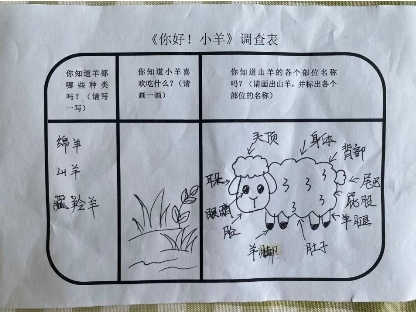 《你好!小羊》调查表
你知道羊都
哪些种类
吗?(请写
一写)
你知道小羊喜
欢吃什么?(请
画一画)
你知道山羊的各个部位名称
吗?(请画出山羊,并标出各个
部位的名称)
绵羊
山羊
羚羊
头顶
身体
背部
耳朵
尾巴
眼睛
屁股
脸
羊腿
羊脚
肚子